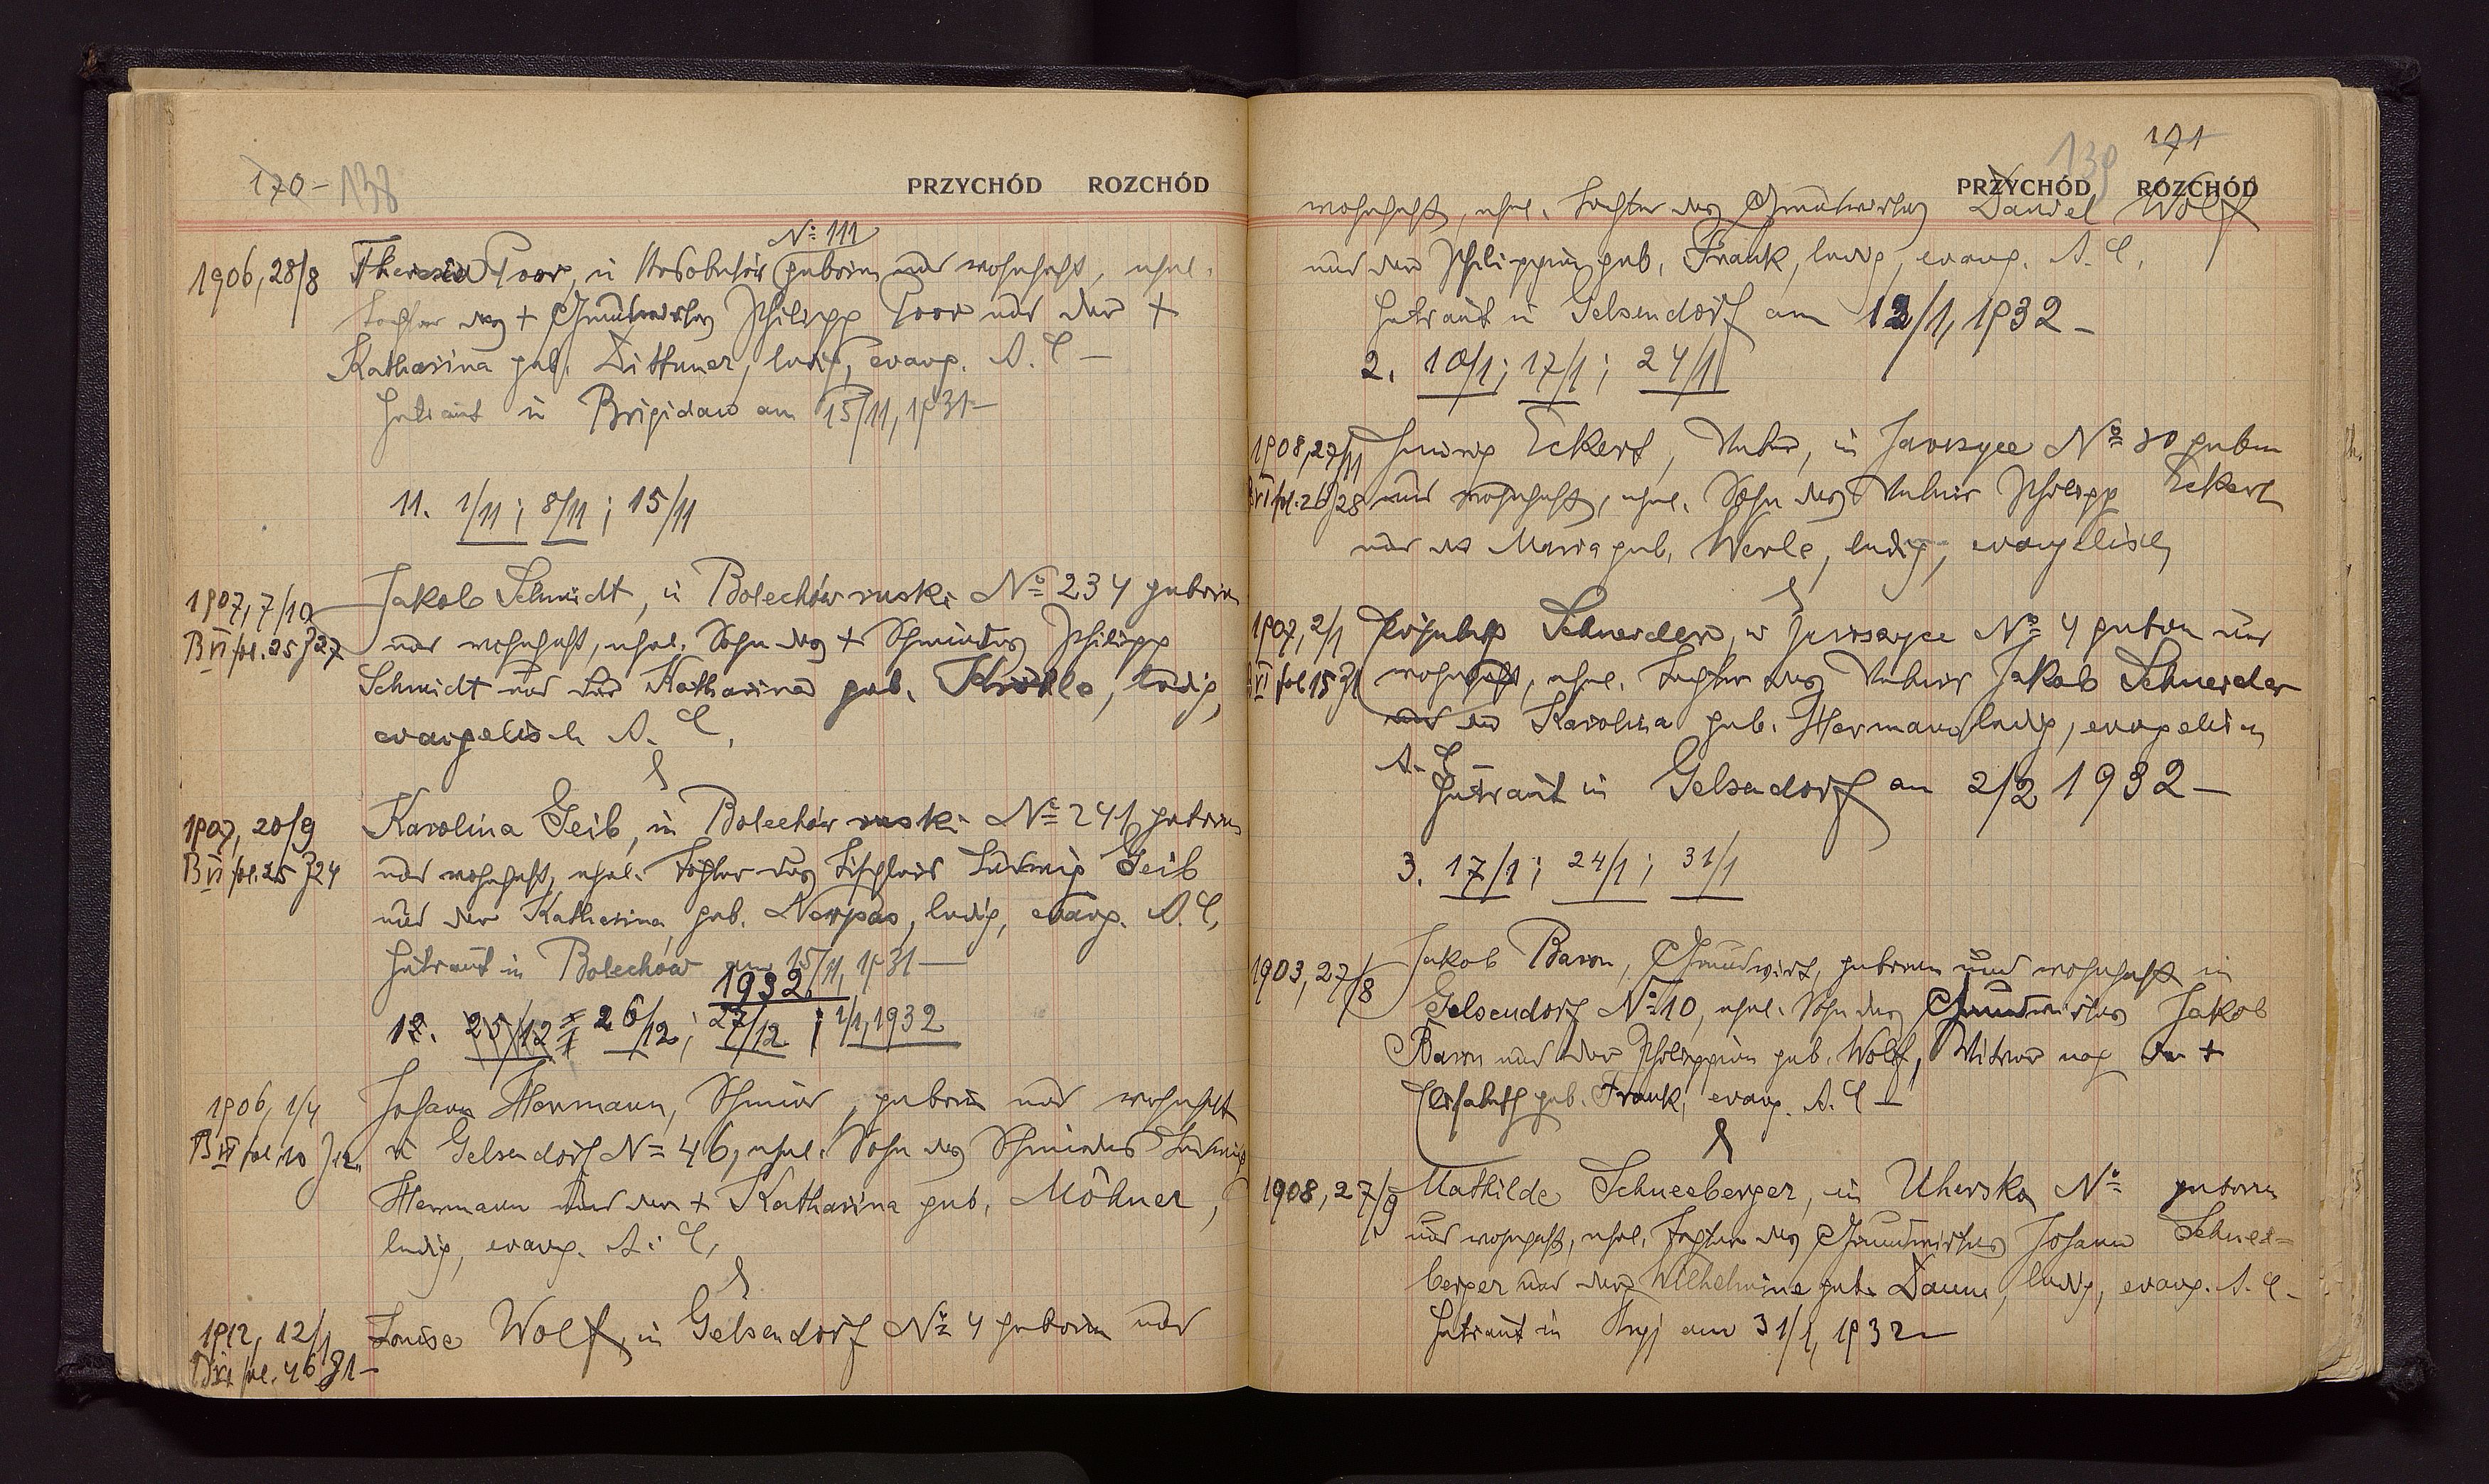 170- 138
PRZYCHÓD ROZCHÓD
No 111
1906, 28/8 Theresia Poor, in geboren und wohnhaft, ehel.
Tochter des + Grundwirtes Philipp Poor und der +
Katharina geb. Dittmer, ledig, evang. A. C. –
Getraut in Brigidau am 15/11, 1931 –
11. 1/11; 8/11; 15/11
1907, 7/10 Jakob Schmidt, in Bolechów ruski No 234 geboren
B VI fol. 25 Z 27 und wohnhaft, ehel. Sohn des + Schmiedes Philipp
Schmidt und der Katharina geb. ledig,
evangelisch A. C.
&
1907, 20/9 Karolina Geib, in Bolechów ruski No 241 geboren
B VI fol. 25 Z 24 und wohnhaft, ehel. Tochter des Tischlers Ludwig Geib
und der Katharina, geb. ledig, evang. A. C.
Getraut in Bolechów am 15/11, 1931 –
1932
12. 25/12 26/12; 27/12; 1/1, 1932
1906, 1/4 Johann Hermann, Schmied, geboren und wohnhaft
B VI fol. 10 in Gelsendorf No 46, ehel. Sohn des Schmiedes Ludwig
Hermann und der + Katharina geb. Möhner,
ledig, evang. A. C.
&
1912, 12/1 Louise Wolf, in Gelsendorf No 4 geboren und
fol. 46 Z 1 –
171
139
PRZYCHÓD ROZCHÓD
wohnhaft, ehel. Tochter des Grundwirtes Daniel Wolf
und der Philippine geb. Frank, ledig, evang. A. C.
Getraut in Gelsendorf am 12/1, 1932 –
2. 10/1; 17/1; 24/1
1908, 27/11 Ludwig Eckert, in No 80 geboren
VI fol. 26 Z 28 und wohnhaft, ehel. Sohn des Philipp Eckert
und der Maria geb. Werle, ledig, evangelisch
&
1907, 2/1 Schneider, in No 4 geboren und
VI fol 15 Z 1 wohnhaft, ehel. Tochter des Jakob Schneider
und der Karolina geb. Hermann, ledig, evangelisch
A. C.
Getraut in Gelsendorf am 2/2 1932 –
3. 17/1; 24/1; 31/1
1903, 27/8 Jakob Baron, Grundwirt, geboren und wohnhaft in
Gelsendorf No 10, ehel. Sohn des Grundwirtes Jakob
Baron und der Philippine geb. Wolf, Witwer nach der +
Elisabeth geb. Frank, evang. A. C –
&
1908, 27/9 Mathilde Schneeberger, in Uhersko No geboren
und wohnhaft, ehel. Tochter des Grundwirtes Johann Schnee=
berger und der Wilhelmine geb. Daum, ledig, evang. A. C –
Getraut in Stryj am 31/1, 1932 –